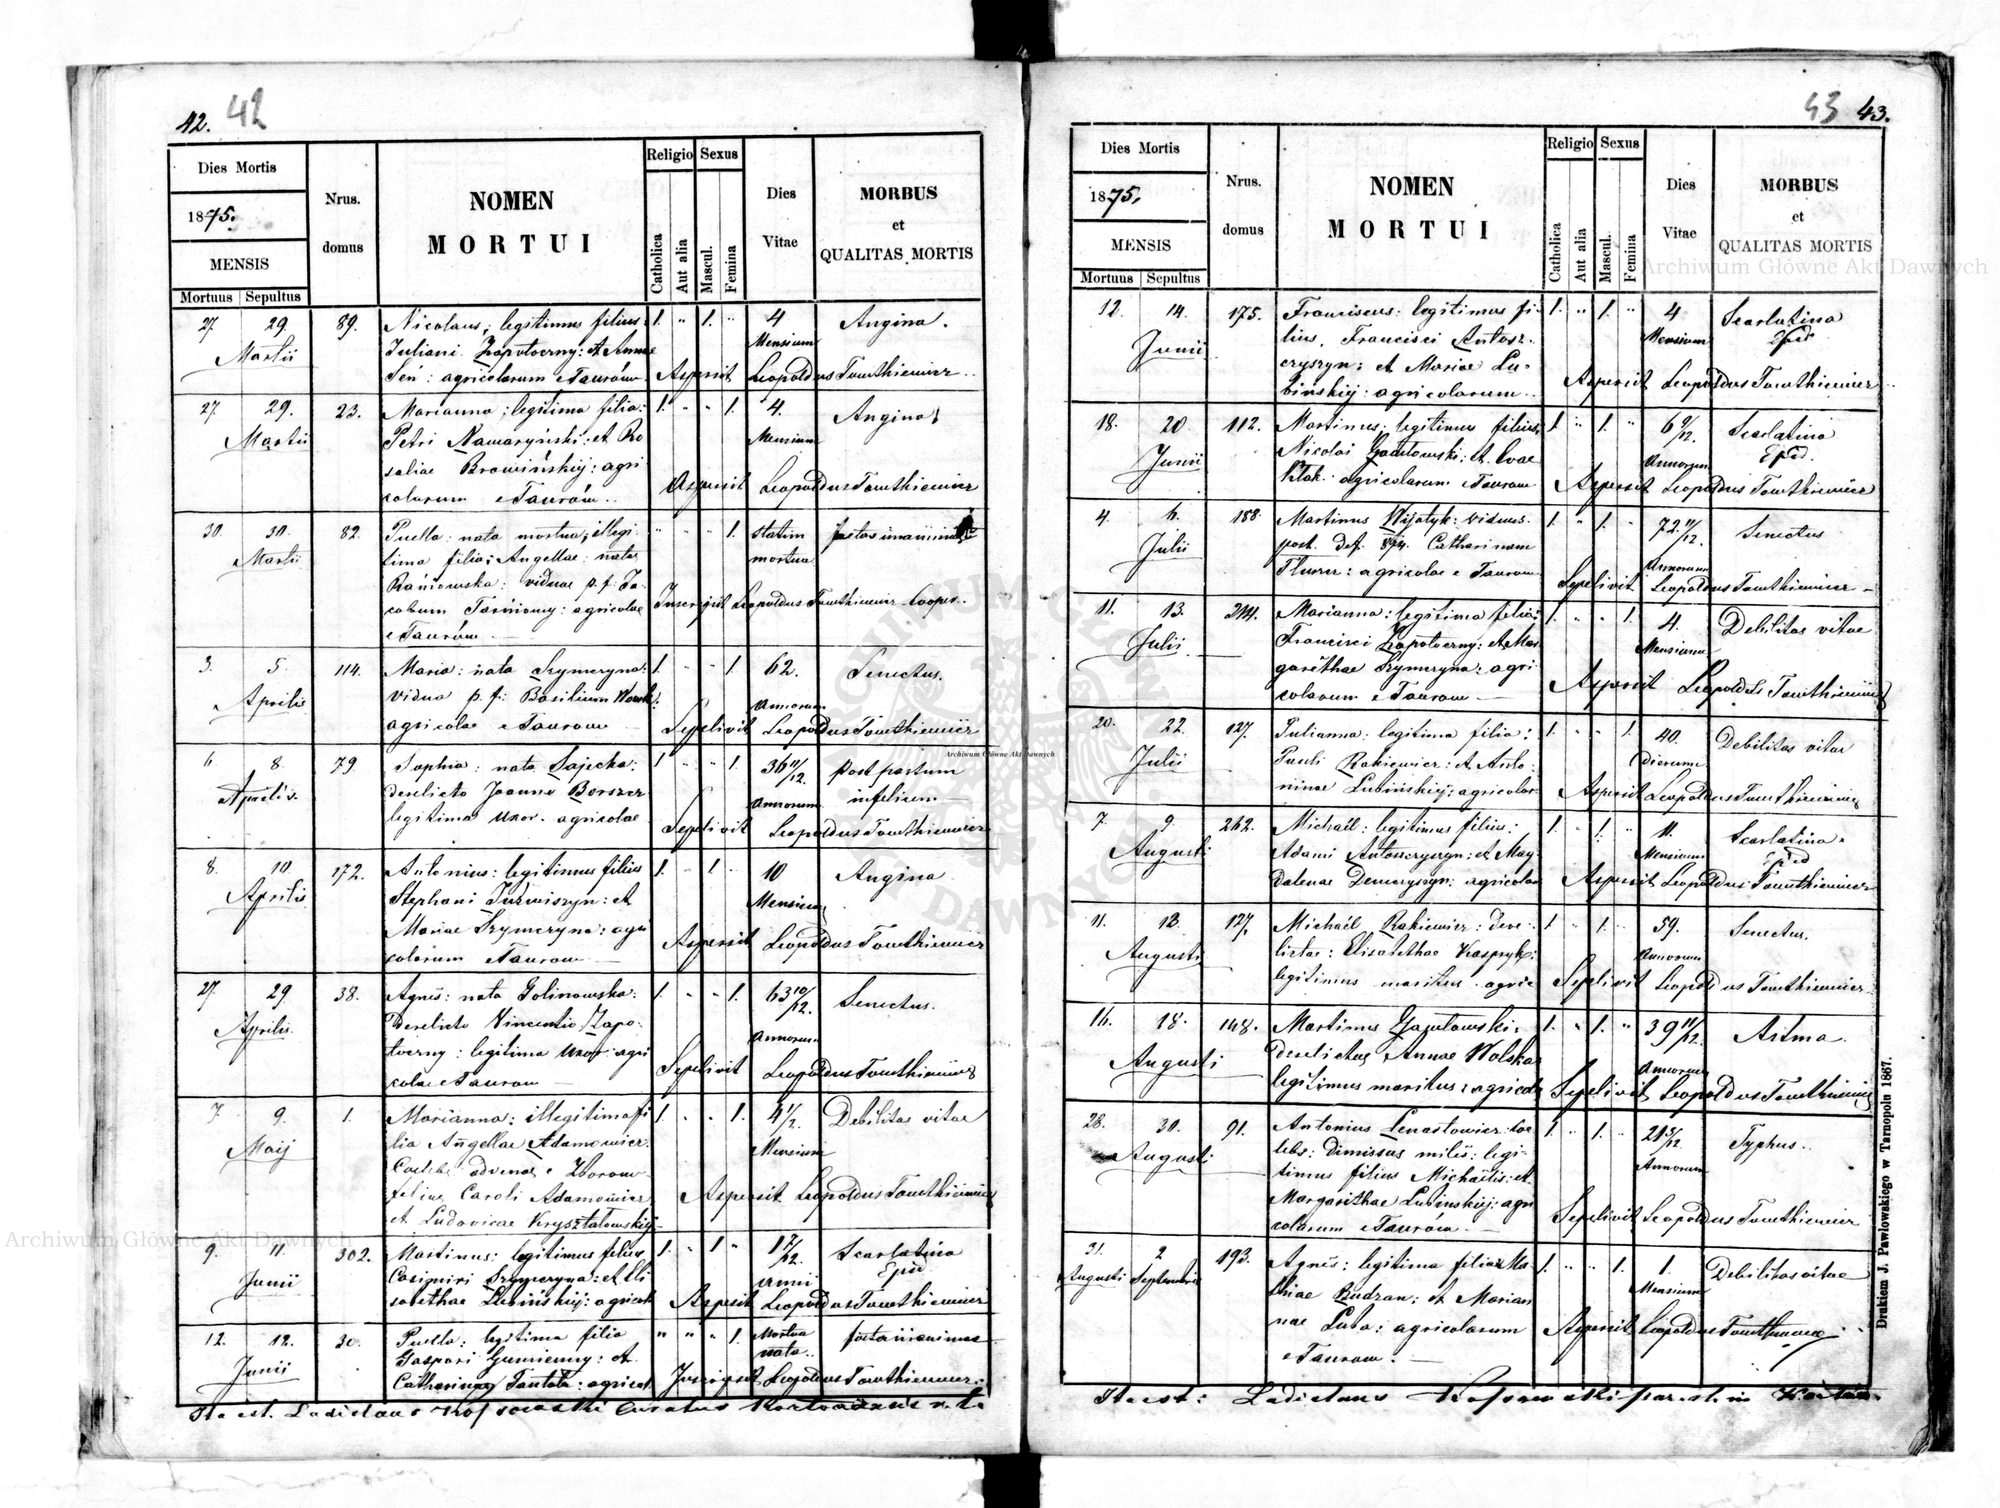 42. 42
Dies Mortis
1875.
MENSIS
Mortuus Sepultus
Nrus. domus
NOMEN
MORTUI
Religio Sexus
Catholica
Aut alia
Mascul.
Femina
Dies Vitae
MORBUS
et
QUALITAS MORTIS
27 29 89. Nicolaus; legitimus filius: 1. " 1. " 4 Angina.
Martii Juliani Zapotoczny: et Annae Mensium
Seń: agricolarum e Taurów Aspersit Leopoldus
27. 29. 23. Marianna; legitima filia: 1. " " 1. 4. Angina
Martii Petri Namaryński: et Ro Mensium
saliae Browińskij: agri
colarum e Taurów.. Aspersit Leopoldus
30. 30. 82. Puella: nata mortua; illegi " " " 1. statim
Martii tima filia; Angellae: nata mortua
viduae p. f: Ja
cobum agricolae Inscripsit Leopoldus Cooper..
e Taurów
3. 5. 114. Maria: nata Szymczyna: 1. " " 1. 62. Senectus.
Aprilis vidua p. f: Basilium Annorum
agricolae e Taurow Sepelivit Leopoldus
6 8. 79 Sophia: nata Sajecka: 1 " " 1. 36 11/12. post partum
Aprilis. derelicto Joanne Borszcz Annorum infelicem
legitima uxor. agricolae Sepelivit Leopoldus
8. 10. 172. Antonius: legitimus filius 1. " 1 " 10 Angina
Aprilis Stephani et Mensium
Mariae Szymczyna: agri
colarum e Taurow Aspersit Leopoldus
27. 29 38. Agnes: nata Golinowska: 1. " " 1. 63 10/12. Senectus.
Aprilis Derelicto Vincentio Zapo: Annorum
toczny: legitima uxor: agri
colae e Taurow Sepelivit Leopoldus
7. 9. 1. Marianna: illegitima fi 1. " " 1. 4 1/2. Debilitas vitae
Maij lia Angellae Adamowicz. Mensium
advenae e
filiae Caroli Adamowicz
et Ludovicae Kryształowskij Aspersit Leopoldus
9. 11. 302. Martinus: legitimus filius 1. " 1 " 1 7/12 Scarlatina
Junii Casimiri Szymczyna: et Eli Annii Epid
sabethae Lubińskij: agricol Aspersit Leopoldus
12. 12. 30. Puella: legitima filia " " " 1. Mortua
Junii Gaspari Gumienny: et nata..
Catharinae agricol Inscripsit Leopoldus
Ita est. Ladislaus
43 43.
Dies Mortis
1875.
MENSIS
Mortuus Sepultus
Nrus. domus
NOMEN
MORTUI
Religio Sexus
Catholica
Aut alia
Mascul.
Femina
Dies Vitae
MORBUS
et
QUALITAS MORTIS
12. 14. 175. Franciscus: legitimus fi- 1. " 1. " 4 Scarlatina
Junii lius, Francisci Antosz- Mensium Epid
czyszyn: et Mariae Lu-
bińskij: agricolarum.. Aspersit Leopoldus
18. 20 112. Martinus: legitimus filius: 1. " 1. " 6 9/12. Scarlatina
Junii Nicolai Gawłowski: et Evae Annorum Epid.
Ktak. agricolarum e Taurow Aspersit Leopoldus
4. 6. 188. Martinus Wijatyk: viduus. 1. " 1. " 72 11/12. Senectus
Julii post. def. 874. Catharinam Annorum
agricolae e Taurow Sepelivit Leopoldus
11. 13. 214. Marianna: legitima filia: 1. " " 1. 4. Debilitas vitae
Julii Francisci Zapotoczny: et Mar Mensium
garethae Szymczyna: agri
colarum e Taurow Aspersit Leopoldus
20. 22. 127. Julianna: legitima filia: 1. " " 1. 40. Debilitas vitae
Julii Pauli Rakiewicz: et Anto- Dierum
ninae Lubińskij: agricolar Aspersit Leopoldus
7. 9. 262. Michaël: legitimus filius: 1. " 1. " 11. Scarlatina.
Augusti Adami Antoszczyszyn: et Mag Mensium Epid
dalenae Demczyszyn: agricolar Aspersit Leopoldus
11. 13. 127. Michaël Rakiewicz: dere- 1. " 1. " 59. Senectus.
Augusti lictae: Elisabethae Kaspryk: Annorum
legitimus maritus agric Sepelivit Leopoldus
16. 18. 148. Martinus Gawłowski: 1. " 1. " 39 11/12. Astma.
Augusti derelictae Annae Wolska Annorum
legitimus maritus: agricol Sepelivit Leopoldus
28. 30. 91. Antonius Lenartowicz: coe 1. " 1. " 21 5/12 Typhus..
Augusti lebs: Dimissus miles: legi- Annorum
timus filius Michaëlis: et
Margarithae Lubinskij: agri
colarum e Taurow. Sepelivit Leopoldus
31. 2 193. Agnes: legitima filia: Ma 1. " " 1. 1. Debilitas vitae
Augusti Septembris thiae Budzan: et Marian Mensium
nae Luba: agricolarum Aspersit Leopoldus
e Taurow.
Ita est: Ladislaus
Drukiem J. Pawłowskiego w Tarnopolu 1867.
Archiwum Główne Akt Dawnych
Archiwum Główne Akt Dawnych
Archiwum Główne Akt Dawnych
ARCHIWUM GŁÓWNE AKT DAWNYCH